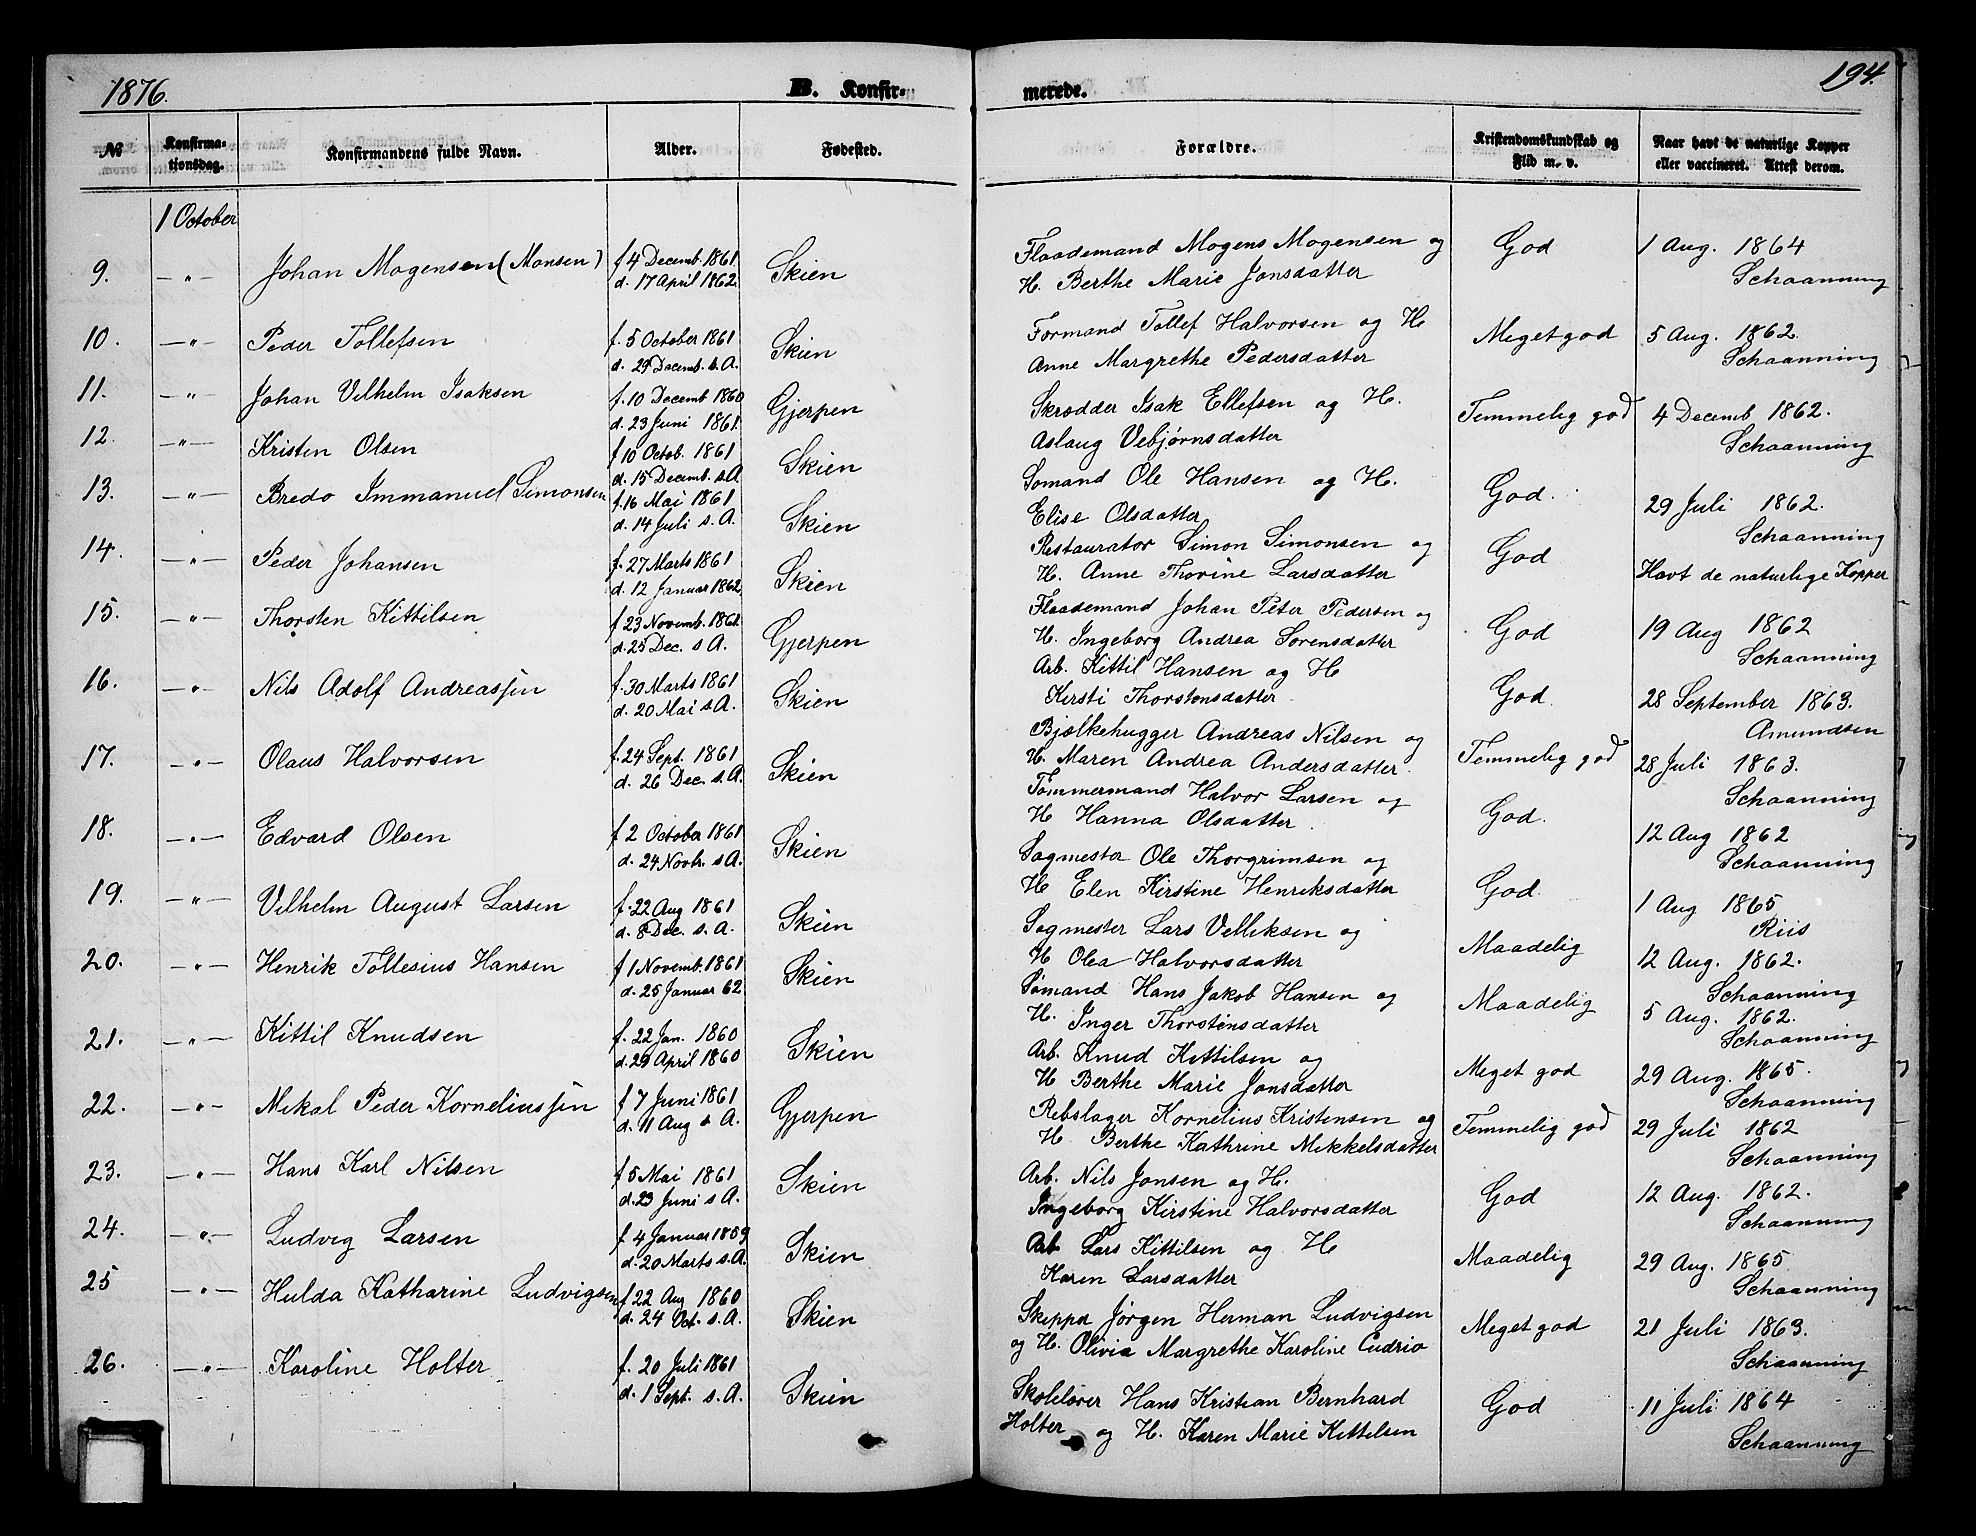 1876.
B. Konfir-
merede.
194.
№
Konfirma-
tionsdag.
Konfirmandens fulde Navn.
Alder.
Fødested.
Forældre.
Kristendomskundskab og
Flid m. v.
Naar havt de naturlige Kopper
eller vaccineret. Attest derom.
1 October
9. —"— Johan Mogensen (Monsen) f. 4 Decemb. 1861 Skien Flaademand Mogens Mogensen og God 1 Aug. 1864
d. 17 April 1862 H. Berthe Marie Jonsdatter Schaanning
10. —"— Peder Tollefsen f. 5 October 1861 Skien Formand Tollef Halvorsen og H Meget god 5 Aug. 1862.
d. 29 Decemb. s.A. Anne Margrethe Pedersdatter Schaanning
11. —"— Johan Vilhelm Isaksen f. 10 Decemb 1860 Gjerpen Skrædder Isak Ellefsen og H. Temmelig god 4 Decemb 1862.
d. 23 Juni 1861. Aslaug Vebjørnsdatter Schaanning
12. "— Kristen Olsen f 10 Octob. 1861 Skien Sømand Ole Hansen og H. God. 29 Juli 1862.
d. 15 Decemb. s.A Elise Olsdatter Schaanning
13. —"— Bredo Immanuel Simonsen f. 16 Mai 1861 Skien Restaurator Simon Simonsen og God Havt de naturlige Kopper
d. 14 Juli s. A. H. Anne Thorine Larsdatter
14. —"— Peder Johansen f. 27 Marts 1861 Skien Flaademand Johan Peter Pedersen og God 19 Aug 1862
d. 12 Januar 1862 H. Ingeborg Andrea Sorensdatter Schaanning
15. —"— Thorsten Kittilsen f 23 Novemb. 1861 Gjerpen Arb. Kittil Hansen og H God. 28 September 1863.
d. 25 Dec. s A. Kirsti Thorstensdatter Amundsen
16. —"— Nils Adolf Andreassen f. 30 Marts 1861 Skien Bjælkehugger Andreas Nilsen og Temmelig god 28 Juli 1863.
d. 20 Mai s.A. H. Maren Andrea Andersdatter. Schaanning
17. —"— Olaus Halvorsen f. 24 Sept. 1861 Skien Tømmermand Halvor Larsen og God. 12 Aug 1862
d. 26 Dec. s.A. H Hanna Olsdatter. Schaanning
18. —"— Edvard Olsen f 2 October 1861 Skien Sagmester Ole Thorgrimsen og God 1 Aug 1865
d. 24 Novb. s A. H Elen Kirstine Henriksdatter Riis
19. —"— Vilhelm August Larsen f. 22 Aug 1861 Skien Sagmester Lars Velliksen og Maadelig 12 Aug. 1862.
d. 8 Dec. s. A. H Olea Halvorsdatter Schaanning
20. —"— Henrik Tollesius Hansen f 1 Novemb. 1861 Skien Sømand Hans Jakob Hansen og Maadelig 5 Aug. 1862.
d. 25 Januar 62 H. Inger Thorstensdatter Schaanning
21. —"— Kittil Knudsen f. 22 Jan. 1860 Skien Arb. Knud Kittilsen og Meget god 29 Aug. 1865.
d. 29 April 1860 H Berthe Marie Jonsdatter Schaanning
22. —"— Mikal Peder Korneliussen f 7 Juni 1861 Gjerpen Rebslager Kornelius Kristensen og Temmelig god 29 Juli 1862
d. 11 Aug s A. H. Berthe Kathrine Mikkelsdatter Schaanning
23. —"— Hans Karl Nilsen f 5 Mai 1861 Skien Arb. Nils Jonsen og H. God 12 Aug. 1862.
d. 23 Juni s A. Ingeborg Kirstine Halvorsdatter Schaanning
24. —"— Ludvig Larsen f 4 Januar 1859 Skien Arb Lars Kittilsen og H Maadelig 29 Aug. 1865
d. 20 Marts s.A. Karen Larsdatter Schaanning
25 —"— Hulda Katharine Ludvigsen f 22 Aug 1860 Skien Skipper Jørgen Herman Ludvigsen Meget god 21 Juli 1863.
d. 24 Oct. s. A. og H. Olivia Margrethe Karoline Cudrio Schaanning
26. —"— Karoline Holter f. 20 Juli 1861 Skien Skolelærer Hans Kristian Bernhard God 11 Juli 1864
d. 1 Sept. s. A. Holter og H. Karen Marie Kittelsen Schaanning